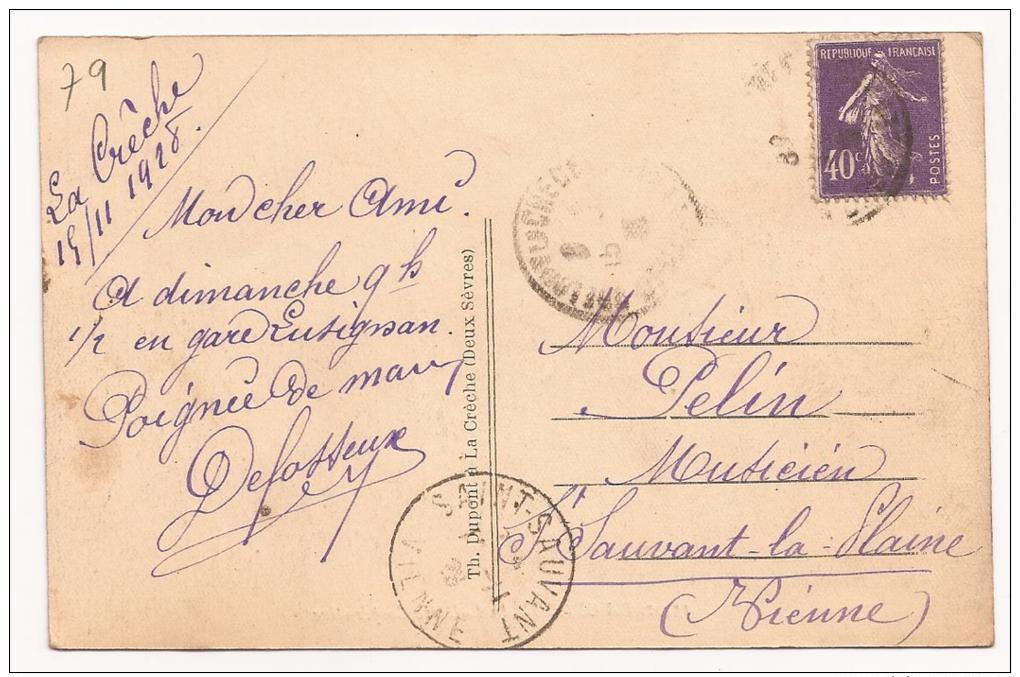 79
La Crêche
15/11 1928.
Mon cher Ami.
A dimanche 9 h
1/2 en gare Lusignan.
Poignée de main,
Defosseux
Th. Dupont à La Crèche (Deux Sèvres)
REPUBLIQUE FRANÇAISE
40c
POSTES
Monsieur
Pelin
Musicien
St Sauvant-la-Plaine
(Vienne)
SAINT-SAUVANT
VIENNE